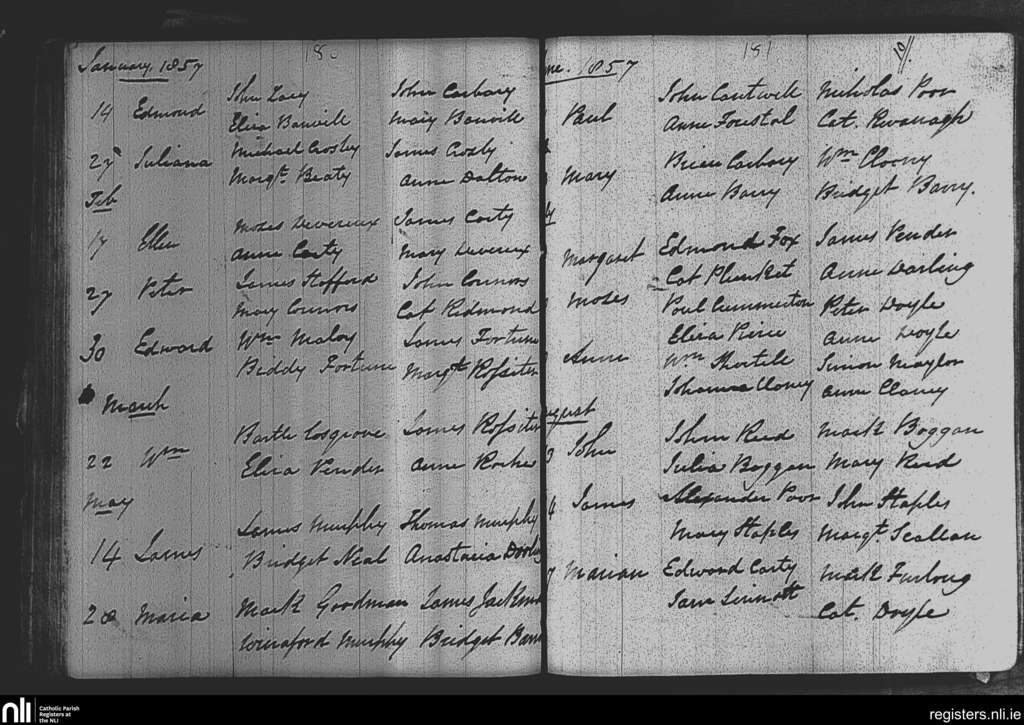 January 1857
John Carbery
14 Edmond
Eliza Banville Mary Banville
27 Juliana Michael Crosby James Crosby
Margt. Beaty Anne Dalton
Feb
Moses Devereux James Corty
17 Ellen
Anne Corty Mary Devereux
27 Peter James Stafford John Connors
Mary Connors Cat Redmond
30 Edward Wm Maloy James Fortune
Biddy Fortune Margt Rossiter
March
Bartle Cosgrove James Rossiter
22 Wm
Eliza Pender Anne Roche
May
James Murphy Thomas Murphy
14 James Bridget Neal Anastasia
28 Maria Mark Goodman James
Murphy Bridget
181
ne. 1857
John Cantwell Nicholas Poor
Paul
Anne Foustal Cat. Kavanagh
Brien Carbory Wm Cloony
Mary
Anne Barry Bridget Barry.
Margaret Edmond Fox James Pender
Cat Plunket Anne Darling
Moses Paul Cummerton Peter Doyle
Eliza Anne Doyle
Anne Wm Simon
Johanna Cloney Anne Cloney
ugust
3 John John Reed Mark Boggan
Julia Boggan Mary Reed
4 James Alexander Poor John Staples
Mary Staples Margt. Scallan
7 Marian Edward Corty Mark Furlong
Jane Sinnott Cat. Doyle
nli Catholic Parish
Registers at
the NLI
registers.nli.ie